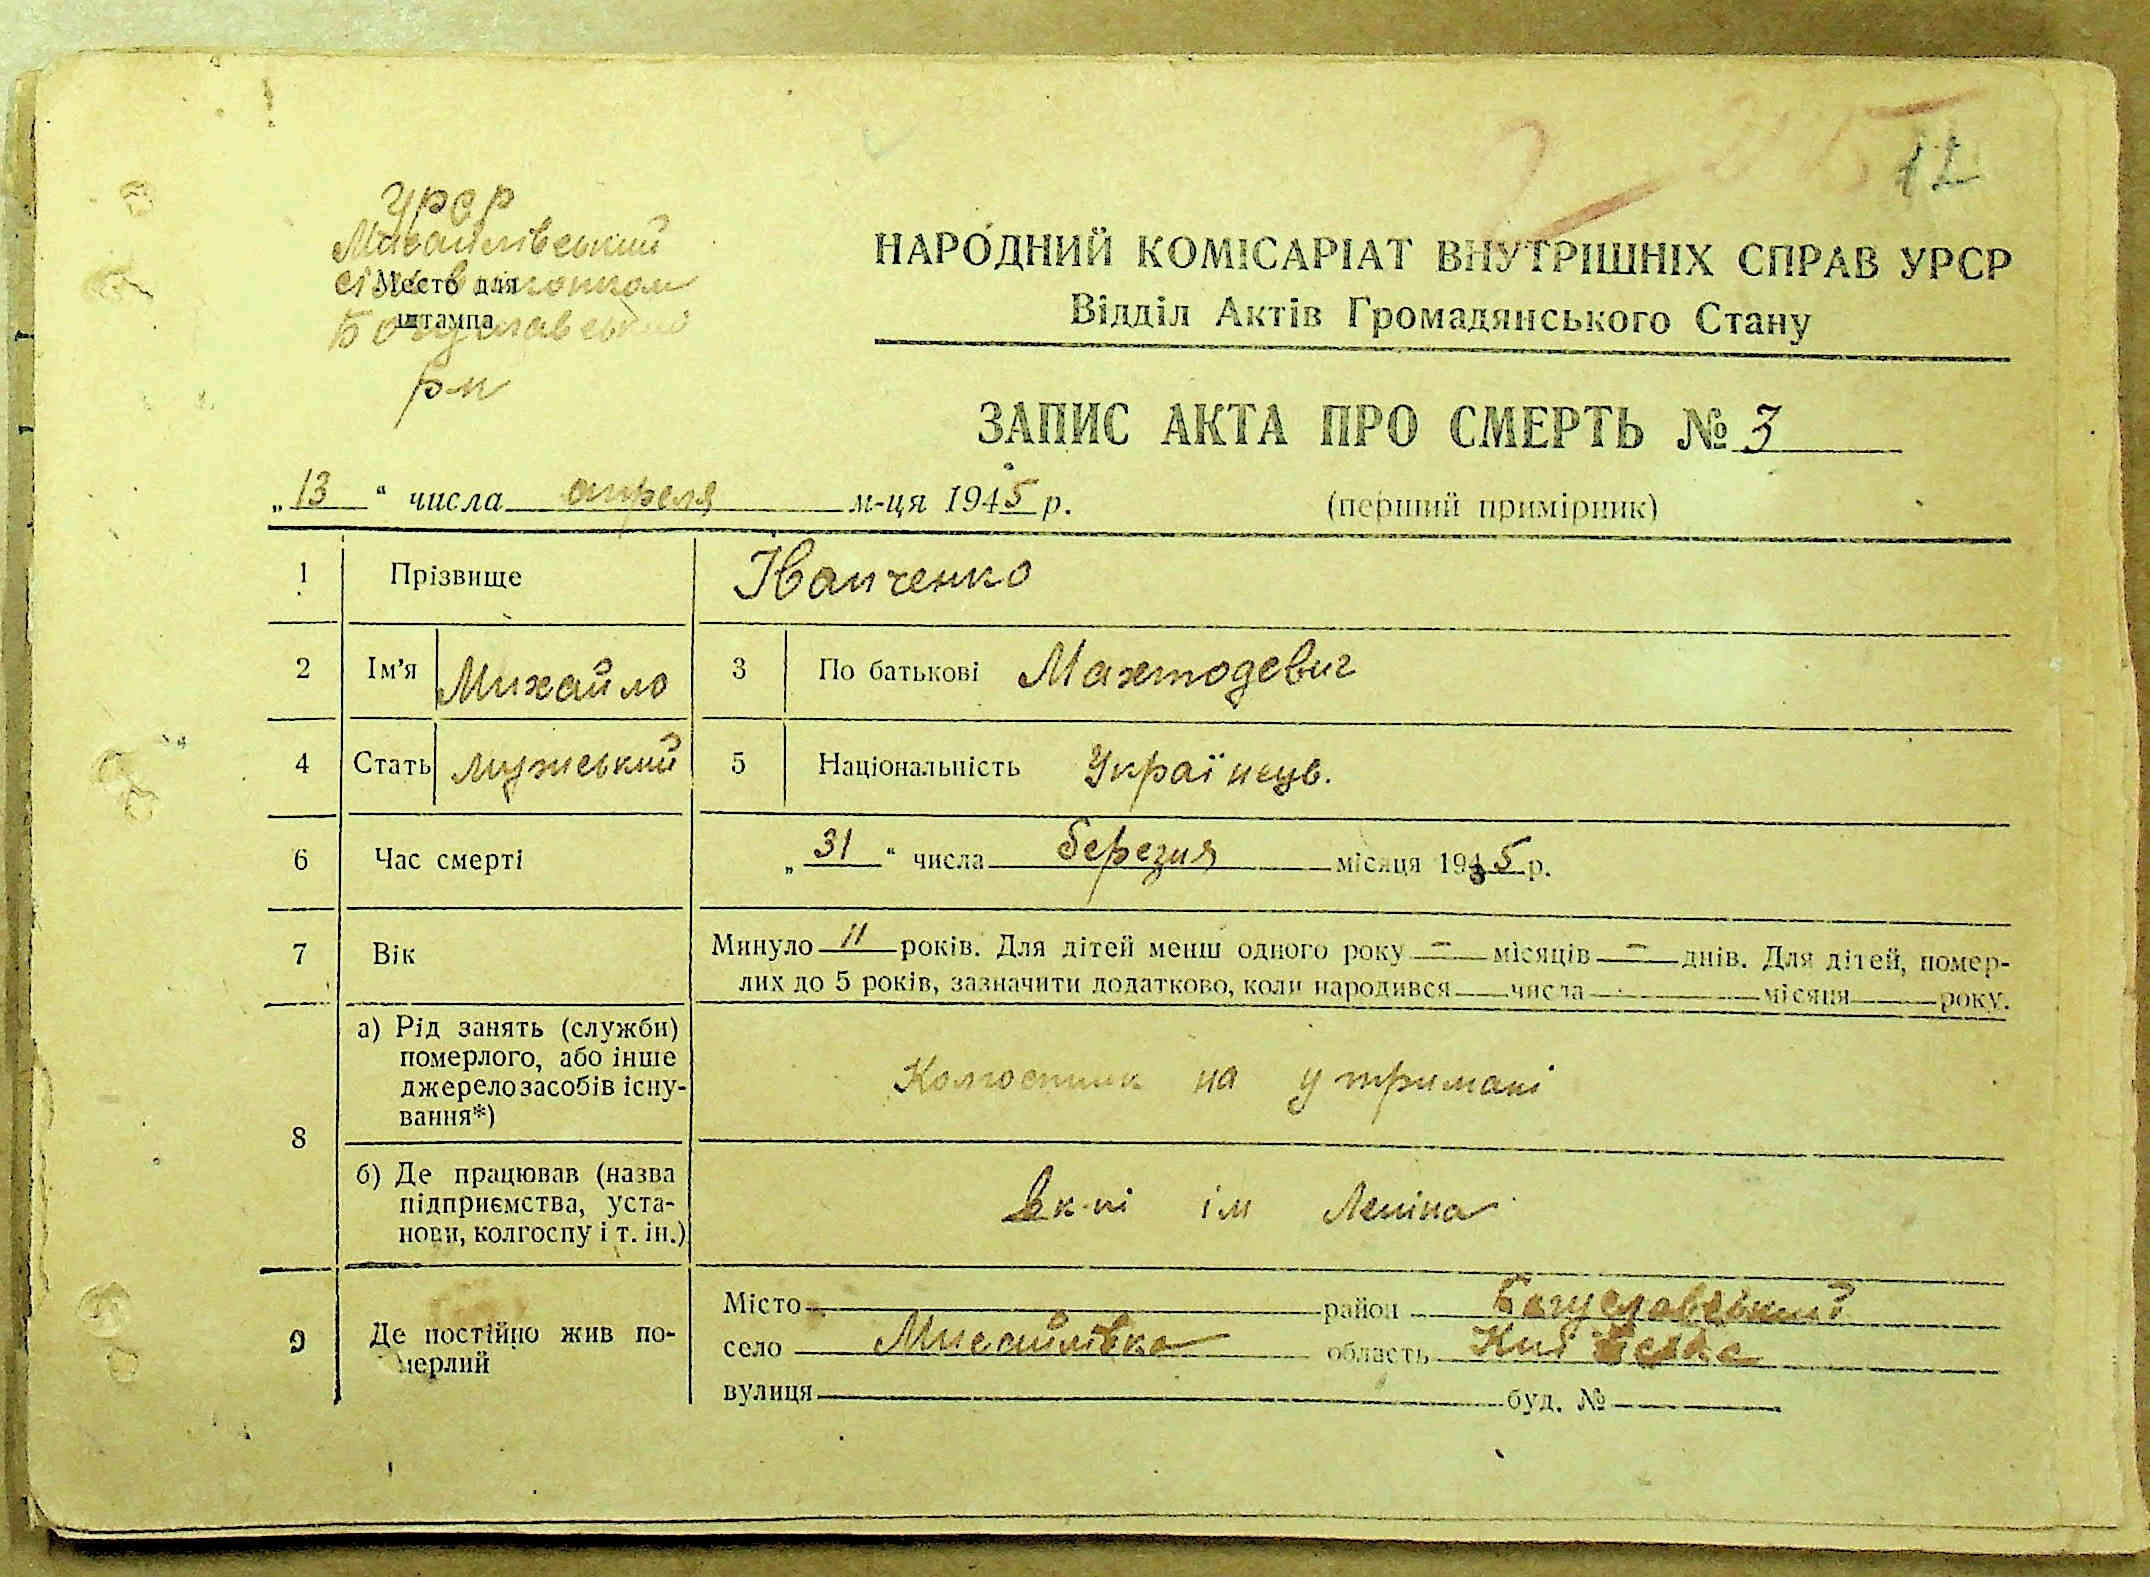 12
УРСР
Місто для
штампа
Богуславський
р-н
НАРОДНИЙ КОМІСАРІАТ ВНУТРІШНІХ СПРАВ УРСР
Відділ Актів Громадянського Стану
ЗАПИС АКТА ПРО СМЕРТЬ № 3
„13“ числа апреля м-ця 1945 р. (перший примірник)
1 Прізвище Іванченко
2 Ім'я Михайло 3 По батькові
4 Стать мужський 5 Національність Українець.
6 Час смерті „31“ числа березня місяця 1945 р.
7 Вік Минуло 11 років. Для дітей менш одного року — місяців — днів. Для дітей, помер-
лих до 5 років, зазначити додатково, коли народився числа місяця року.
8 а) Рід занять (служби)
померлого, або інше
джерело засобів існу-
вання*)
Колгоспник на утримані
б) Де працював (назва
підприємства, уста-
нови, колгоспу і т. ін.)
В к-пі ім Леніна
9 Де постійно жив по-
мерлий
Місто район Богуславський
село Мисайлівка область Київська
вулиця буд. №